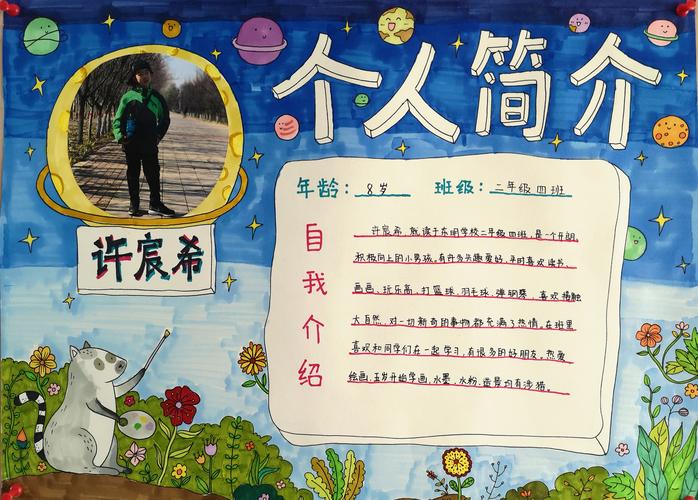 个人简介
许宸希
年龄：8岁 班级：二年级四班
自我介绍
许宸希，就读于东明学校二年级四班，是一个开朗、
积极向上的小男孩。有许多兴趣爱好，平时喜欢读书、
画画、玩乐高、打篮球、羽毛球、弹钢琴，喜欢接触
大自然，对一切新奇的事物都充满了热情。在班里
喜欢和同学们在一起学习，有很多的好朋友。热爱
绘画，五岁开始学画，水墨、水粉、造景均有涉猎。